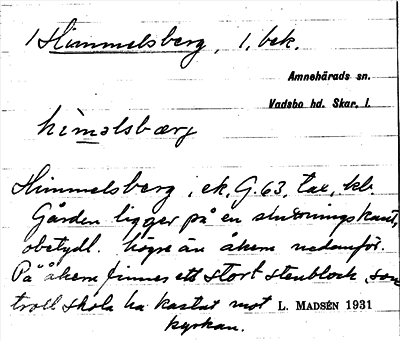 1 Himmelsberg, 1. bek.
Amnehärads sn.
Vadsbo hd. Skar. l.
himəlsbærg
Himmelsberg, ek, G. 63, tax, kb
Gården ligger på en sluttningskant,
obetydl. högre än åkern nedanför.
På åkern finnes ett stort stenblock, som
troll skola ha kastat mot
kyrkan.
L. MADSÉN 1931